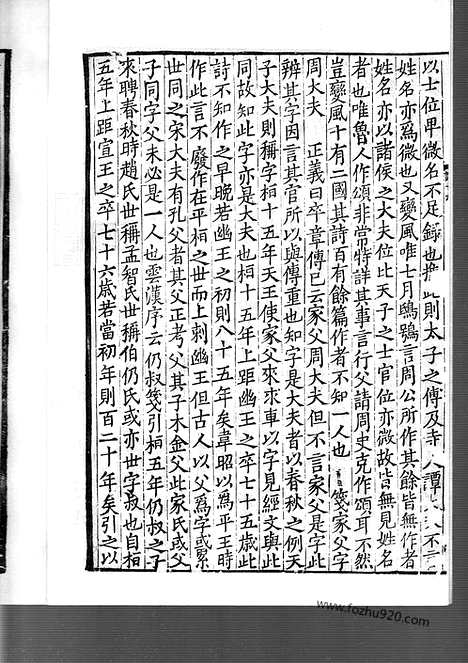 以士位卑微名不足錄也推此則太子之傅及寺人譚大夫不言
姓名亦爲微也又變風唯七月鴟鴞言周公所作其餘皆無作者
姓名亦以諸侯之大夫位比天子之士官位亦微故皆無見姓名
者也唯魯人作頌非常特詳其事言行父請周史克作頌耳不然
豈變風十有二國其詩百有餘篇作者不知一人也 箋家父字
周大夫 正義曰卒章傳已云家父周大夫但不言家父是字此
辨其字因言其官所以與傳重也知字是大夫者以春秋之例天
子大夫則稱字桓十五年天王使家父來求車以字見經文與此
同故知此字亦是大夫也桓十五年上距幽王之卒七十五歲此
詩不知作之早晚若幽王之初則八十五年矣韋昭以爲平王時
作此言不廢作在平桓之世而上刺幽王但古人以父爲字或累
世同之宋大夫有孔父者其父正考父其子木金父此家氏或父
子同字父未必是一人也雲漢序云仍叔箋引桓五年仍叔之子
來聘春秋時趙氏世稱孟智氏世稱伯仍氏或亦世字叔也自桓
五年上距宣王之卒七十六歲若當初年則百二十年矣引之以
www.fozhu920.com